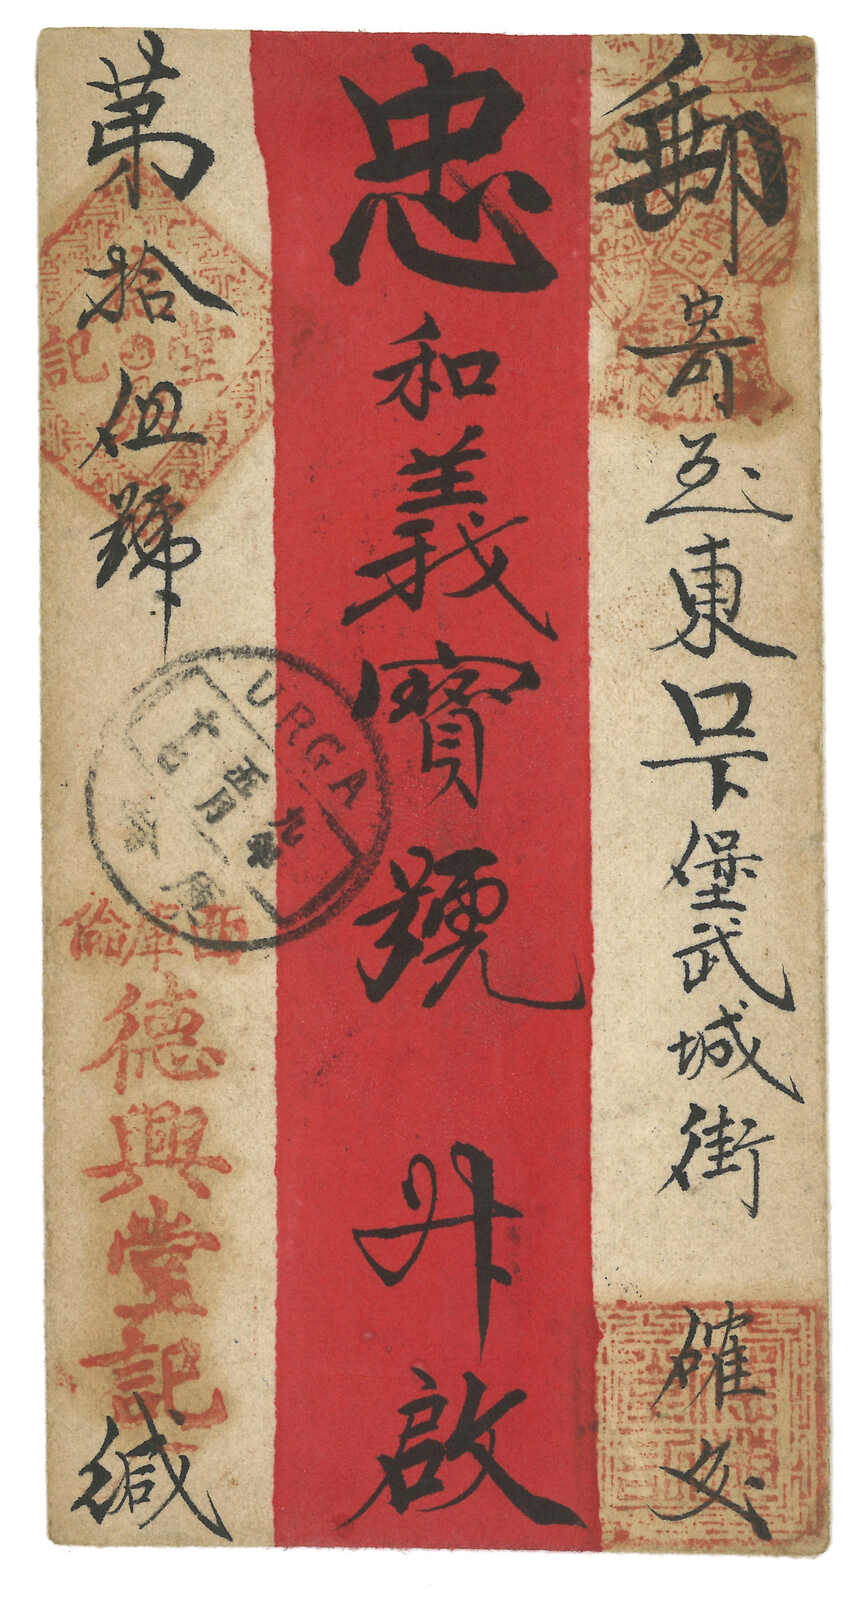 郵寄至東口下堡武城街　確交
忠和義寶號　升啟
第拾伍號
緘
西庫倫
德興堂記
堂記
URGA
九年
五月
十七
庫倫